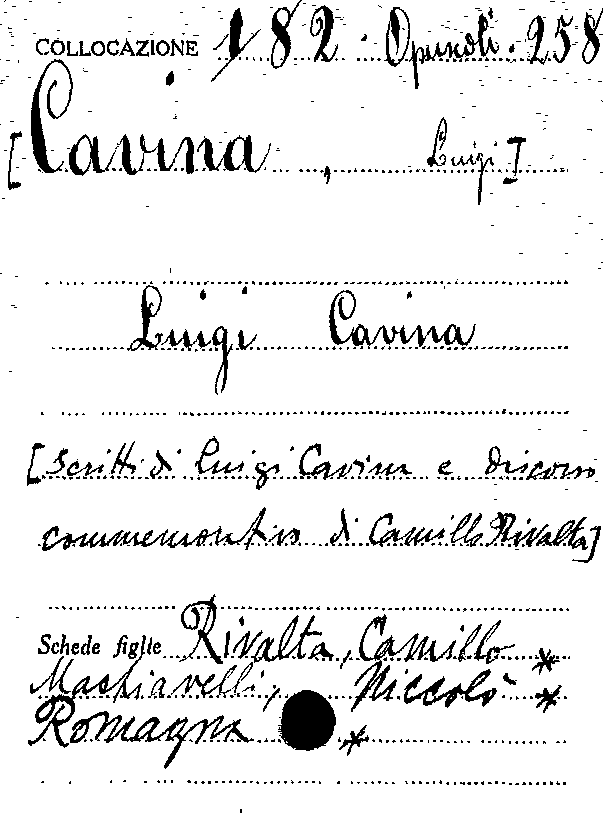 COLLOCAZIONE 182 · Opuscoli · 258
[Cavina, Luigi]
Luigi Cavina
[Scritti di Luigi Cavina e discorso
commemorativo di Camillo Rivalta]
Schede figlie Rivalta, Camillo *
Machiavelli, Niccolò *
Romagna *